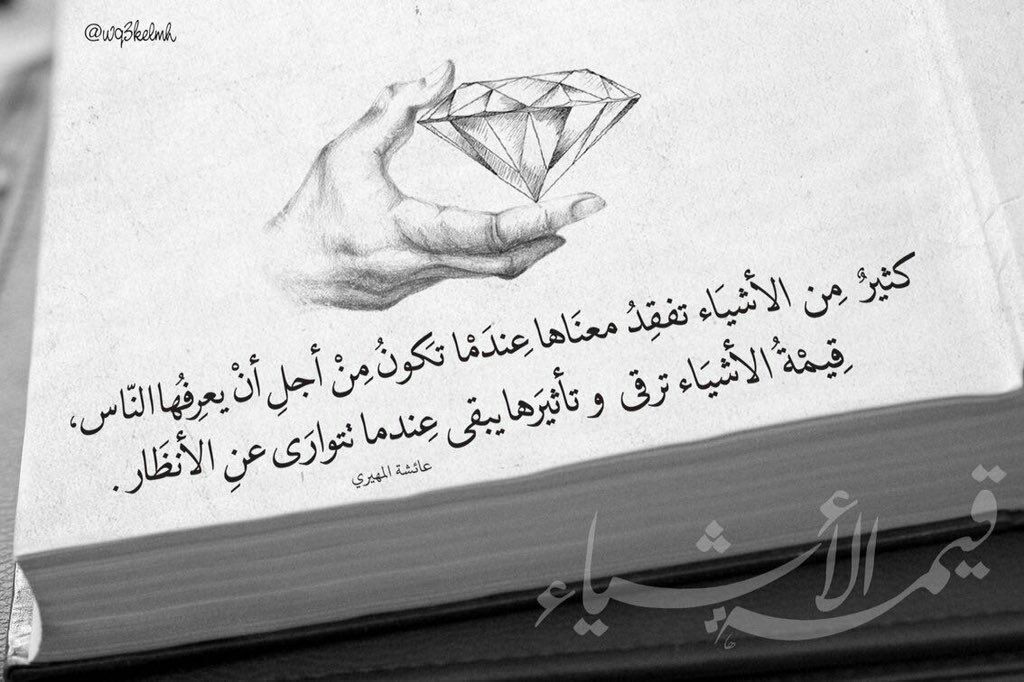 @wq3kelmh
كثيرٌ مِن الأشيَاء تفقِدُ معنَاها عِندَمْا تكَونُ مِنْ أجلِ أنْ يعرِفُها النّاس،
قِيمْةُ الأشيَاء ترقى و تأثيَرها يبقى عِندما تتوارَى عنِ الأنظَار.
عائشة المهيري
قيمة الأشياء